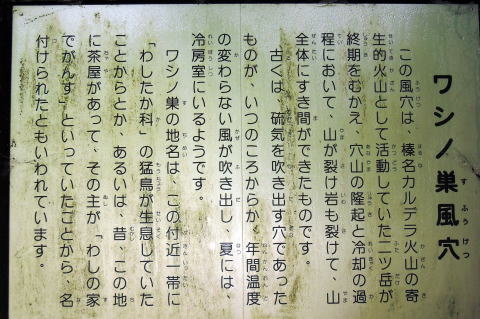 ワシノ巣風穴
この風穴は、榛名カルデラ火山の寄
生的火山として活動していた二ツ岳が
終期をむかえ、穴山の隆起と冷却の過
程において、山が裂け岩も裂けて、山
全体にすき間ができたものです。
古くは、硫気を吹き出す穴であった
ものが、いつのころからか、年間温度
の変わらない風が吹き出し、夏には、
冷房室にいるようです。
ワシノ巣の地名は、この付近一帯に
「わしたか科」の猛鳥が生息していた
ことからとか、あるいは、昔、この地
に茶屋があって、その主が「わしの家
でがんす」といっていたことから、名
付けられたともいわれています。